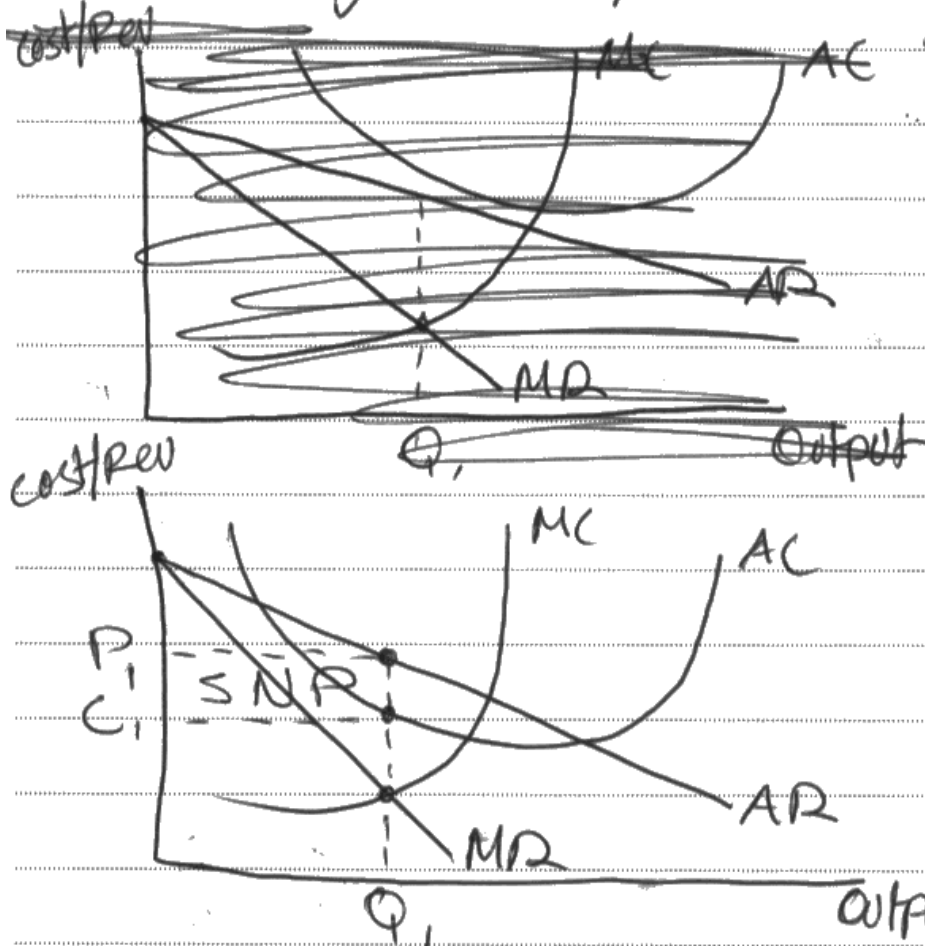 cost/Rev
MC
AC
AR
MR
Q1
Output
cost/Rev
MC
AC
P1
SNP
C1
AR
MR
Q1
Outp